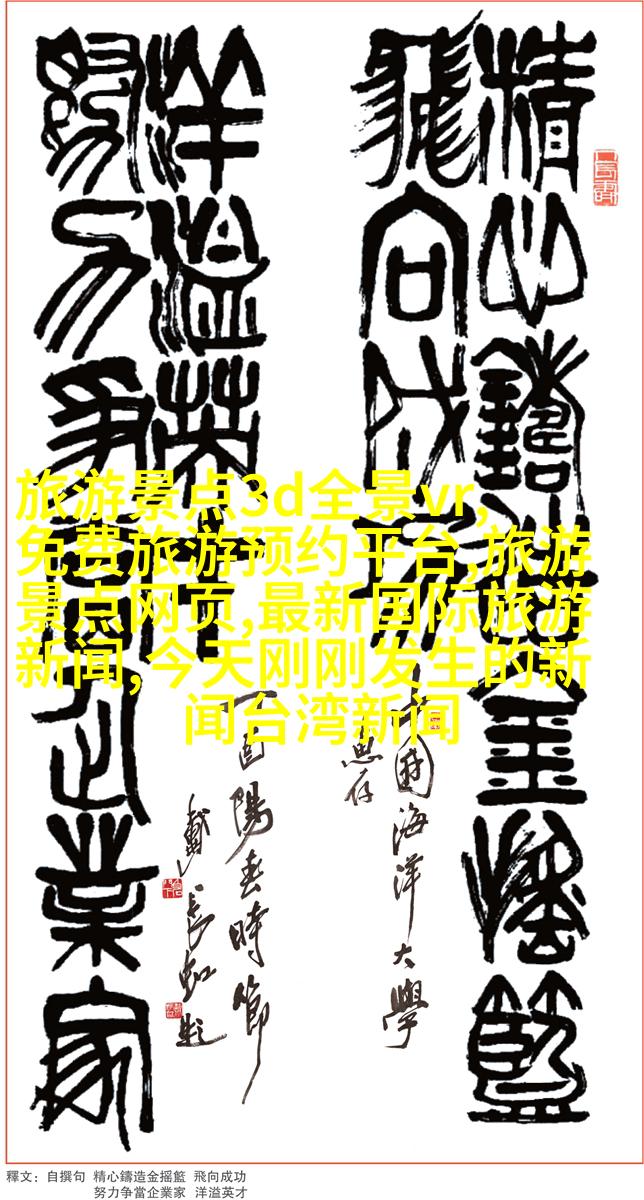 精心鑄造金摇籃
飛向成功
中國海洋大學
惠存
洋溢英才
努力争當企業家
丁酉陽春時節
戴長虹題
旅游景点3d全景vr,
免费旅游预约平台,旅游
景点网页,最新国际旅游
新闻,今天刚刚发生的新
闻台湾新闻
釋文：自撰句 精心鑄造金摇籃 飛向成功
努力争當企業家 洋溢英才